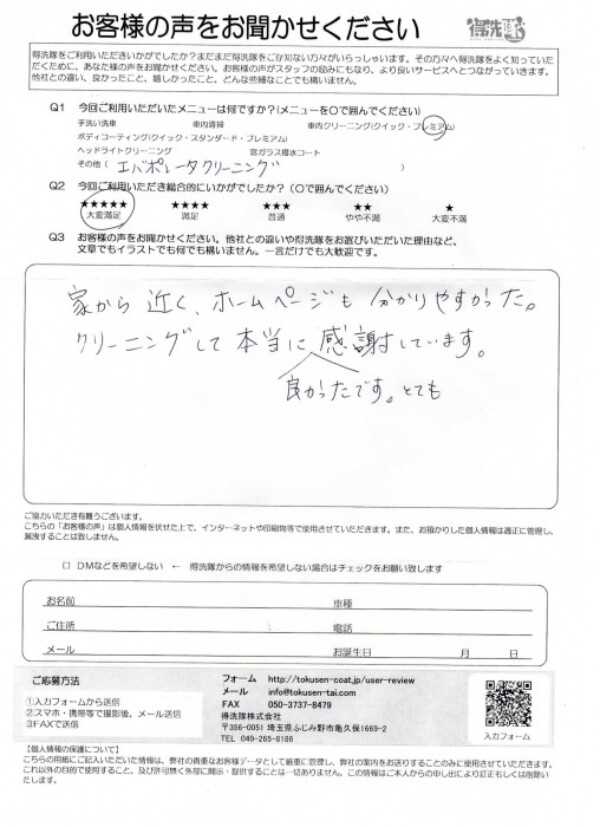 お客様の声をお聞かせください
得洗隊
得洗隊をご利用いただきいかがでしたか?まだまだ得洗隊をご存知ない方々がいらっしゃいます。その方々へ得洗隊をよく知っていた
だくために、あなた様の声をお聞かせください。お客様の声がスタッフの励みにもなり、より良いサービスへとつながっていきます。
他社との違い、良かったこと、嬉しかったこと、どんな些細なことでも構いません。
Q1 今回ご利用いただいたメニューは何ですか?(メニューを〇で囲んでください)
手洗い洗車 車内清掃 車内クリーニング(クイック・プレミアム)
ボディコーティング(クイック・スタンダード・プレミアム)
ヘッドライトクリーニング 窓ガラス撥水コート
その他( エバポレータクリーニング )
Q2 今回ご利用いただき総合的にいかがでしたか?(〇で囲んでください)
★★★★★ ★★★★ ★★★ ★★ ★
大変満足 満足 普通 やや不満 大変不満
Q3 お客様の声をお聞かせください。他社との違いや得洗隊をお選びいただいた理由など、
文章でもイラストでも何でも構いません。一言だけでも大歓迎です。
家から近く、ホームページも分かりやすかった。
クリーニングして本当に感謝しています。
良かったです。とても
ご協力いただき有難うございます。
こちらの「お客様の声」は個人情報を伏せた上で、インターネットや印刷物等で使用させていただきます。また、お預かりした個人情報は適正に管理し、
漏洩することは致しません。
□ DMなどを希望しない ← 得洗隊からの情報を希望しない場合はチェックをお願い致します
お名前 車種
ご住所 電話
メール お誕生日 月 日
ご応募方法
①入力フォームから送信
②スマホ・携帯等で撮影後、メール送信
③FAXで送信
フォーム http://tokusen-coat.jp/user-review
メール info@tokusen-tai.com
FAX 050-3737-8479
得洗隊株式会社
〒356-0051 埼玉県ふじみ野市亀久保1669-2
TEL 049-265-8186
入力フォーム
【個人情報の保護について】
こちらの用紙にご記入いただいた情報は、弊社の貴重なお客様データとして厳重に管理し、弊社の案内をお送りすることのみに使用させていただきます。
これ以外の目的で使用すること、及び許可無く外部に開示・提供することは一切ありません。この情報はご本人からの申し出により訂正もしくは削除い
たします。